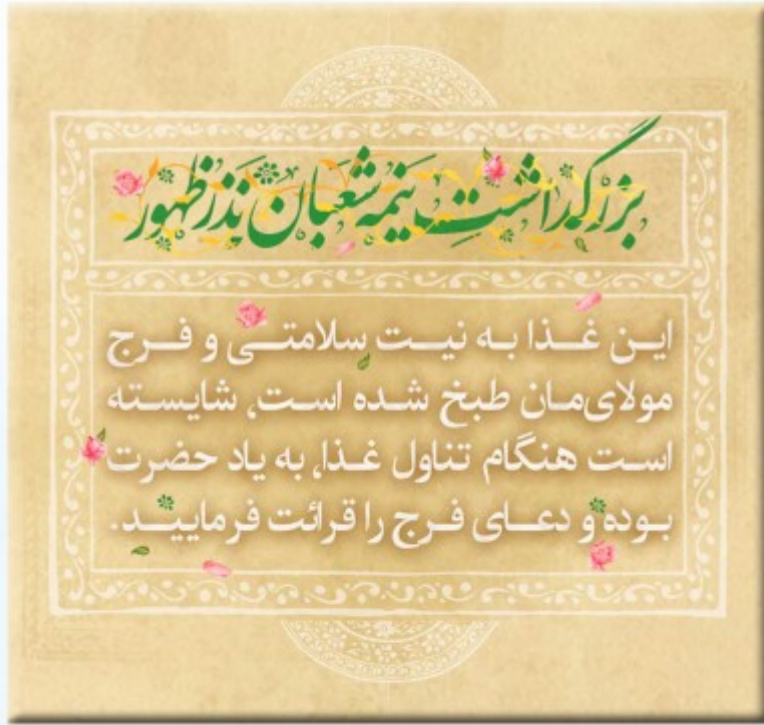 بزرگداشت نیمه شعبان نذر ظهور
این غذا به نیت سلامتی و فرج
مولای‌مان طبخ شده است، شایسته
است هنگام تناول غذا، به یاد حضرت
بوده و دعای فرج را قرائت فرمایید.